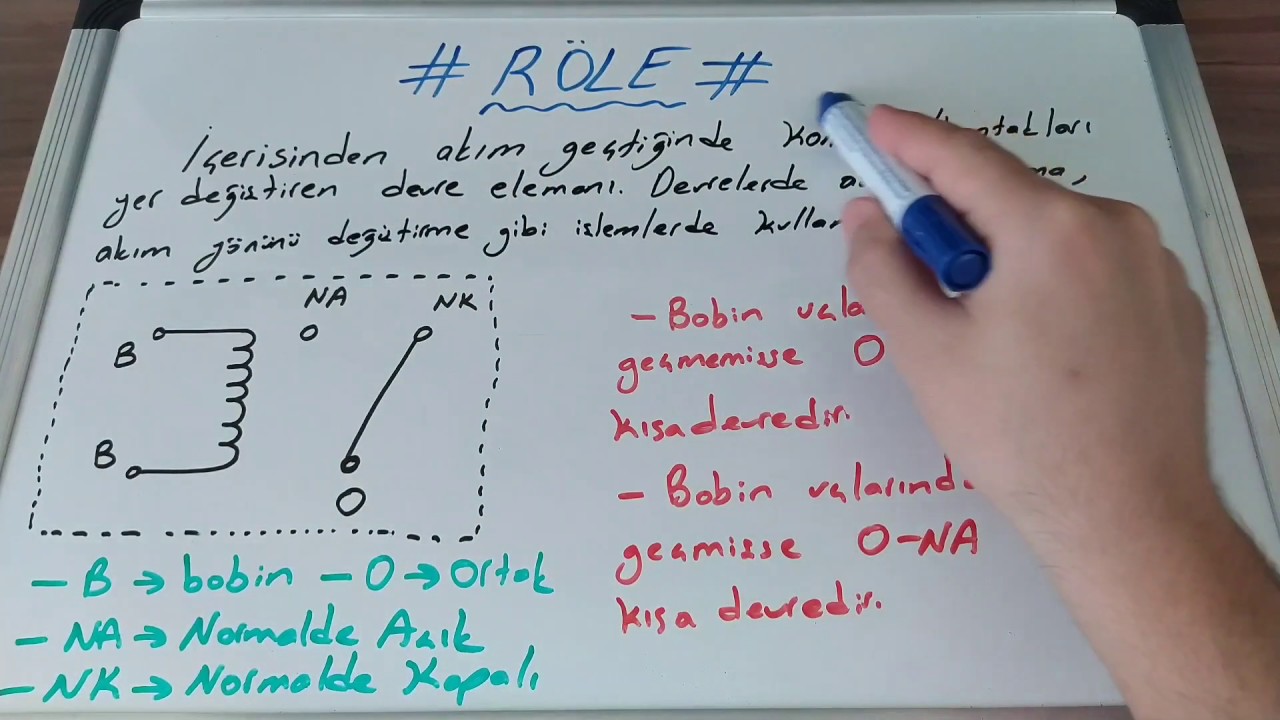 # RÖLE #
İçerisinden akım geçtiğinde
yer değiştiren devre elemanı. Devrelerde
akım yönünü değiştirme gibi işlemlerde
NA NK
B
B
O
- Bobin
geçmemişse O
kısadevredir.
- Bobin uçlarınd
geçmişse O-NA
kısa devredir.
- B → bobin - O → Ortak
- NA → Normalde Açık
- NK → Normalde Kapalı